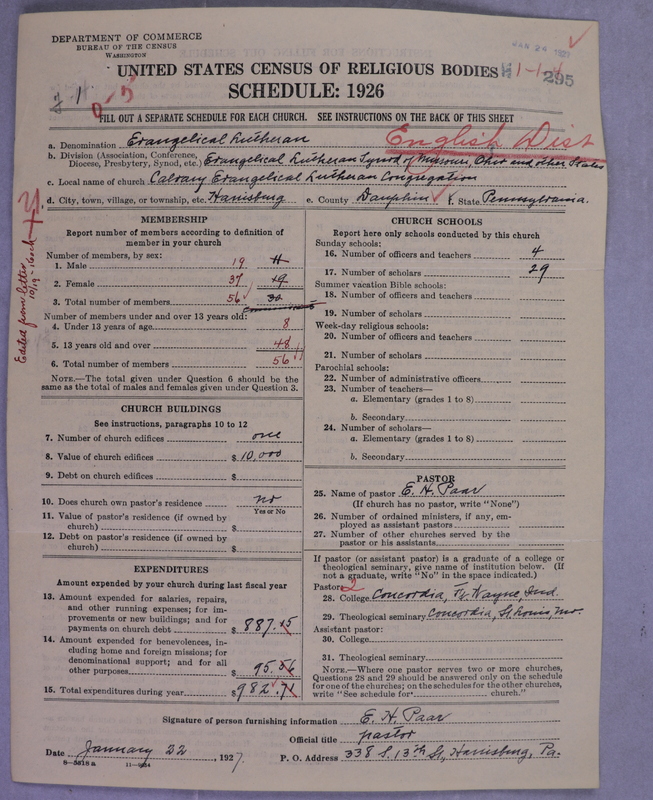 DEPARTMENT OF COMMERCE
BUREAU OF THE CENSUS
WASHINGTON
JAN 24 1927
UNITED STATES CENSUS OF RELIGIOUS BODIES
1-1-
295
SCHEDULE: 1926
FILL OUT A SEPARATE SCHEDULE FOR EACH CHURCH. SEE INSTRUCTIONS ON THE BACK OF THIS SHEET
English Dist
a. Denomination Evangelical Lutheran
b. Division (Association, Conference,
Diocese, Presbytery, Synod, etc.) Evangelical Lutheran Synod of Missouri, Ohio and other States
c. Local name of church Calvary Evangelical Lutheran Congregation
d. City, town, village, or township, etc. Harrisburg e. County Dauphin f. State Pennsylvania.
Edited from letter
MEMBERSHIP
Report number of members according to definition of
member in your church
Number of members, by sex:
1. Male 19 11
2. Female 37 19
3. Total number of members 56 30
Number of members under and over 13 years old:
4. Under 13 years of age 8
5. 13 years old and over 48
6. Total number of members 56
NOTE.—The total given under Question 6 should be the
same as the total of males and females given under Question 3.
CHURCH BUILDINGS
See instructions, paragraphs 10 to 12
7. Number of church edifices one
8. Value of church edifices $10,000
9. Debt on church edifices $
10. Does church own pastor's residence no
Yes or No
11. Value of pastor's residence (if owned by
church) $
12. Debt on pastor's residence (if owned by
church) $
EXPENDITURES
Amount expended by your church during last fiscal year
13. Amount expended for salaries, repairs,
and other running expenses; for im-
provements or new buildings; and for
payments on church debt $887.15
14. Amount expended for benevolences, in-
cluding home and foreign missions; for
denominational support; and for all
other purposes $95.56
15. Total expenditures during year $982.71
CHURCH SCHOOLS
Report here only schools conducted by this church
Sunday schools:
16. Number of officers and teachers 4
17. Number of scholars 29
Summer vacation Bible schools:
18. Number of officers and teachers
19. Number of scholars
Week-day religious schools:
20. Number of officers and teachers
21. Number of scholars
Parochial schools:
22. Number of administrative officers
23. Number of teachers—
a. Elementary (grades 1 to 8)
b. Secondary
24. Number of scholars—
a. Elementary (grades 1 to 8)
b. Secondary
PASTOR
25. Name of pastor E. H. Paar
(If church has no pastor, write "None")
26. Number of ordained ministers, if any, em-
ployed as assistant pastors
27. Number of other churches served by the
pastor or his assistants
If pastor (or assistant pastor) is a graduate of a college or
theological seminary, give name of institution below. (If
not a graduate, write "No" in the space indicated.)
Pastor: 2
28. College Concordia, Ft. Wayne, Ind.
29. Theological seminary Concordia, St. Louis, Mo.
Assistant pastor:
30. College
31. Theological seminary
NOTE.—Where one pastor serves two or more churches,
Questions 28 and 29 should be answered only on the schedule
for one of the churches; on the schedules for the other churches,
write "See schedule for church."
Signature of person furnishing information E. H. Paar
Official title pastor
Date January 22, 1927 P. O. Address 338 S. 13th St, Harrisburg, Pa.